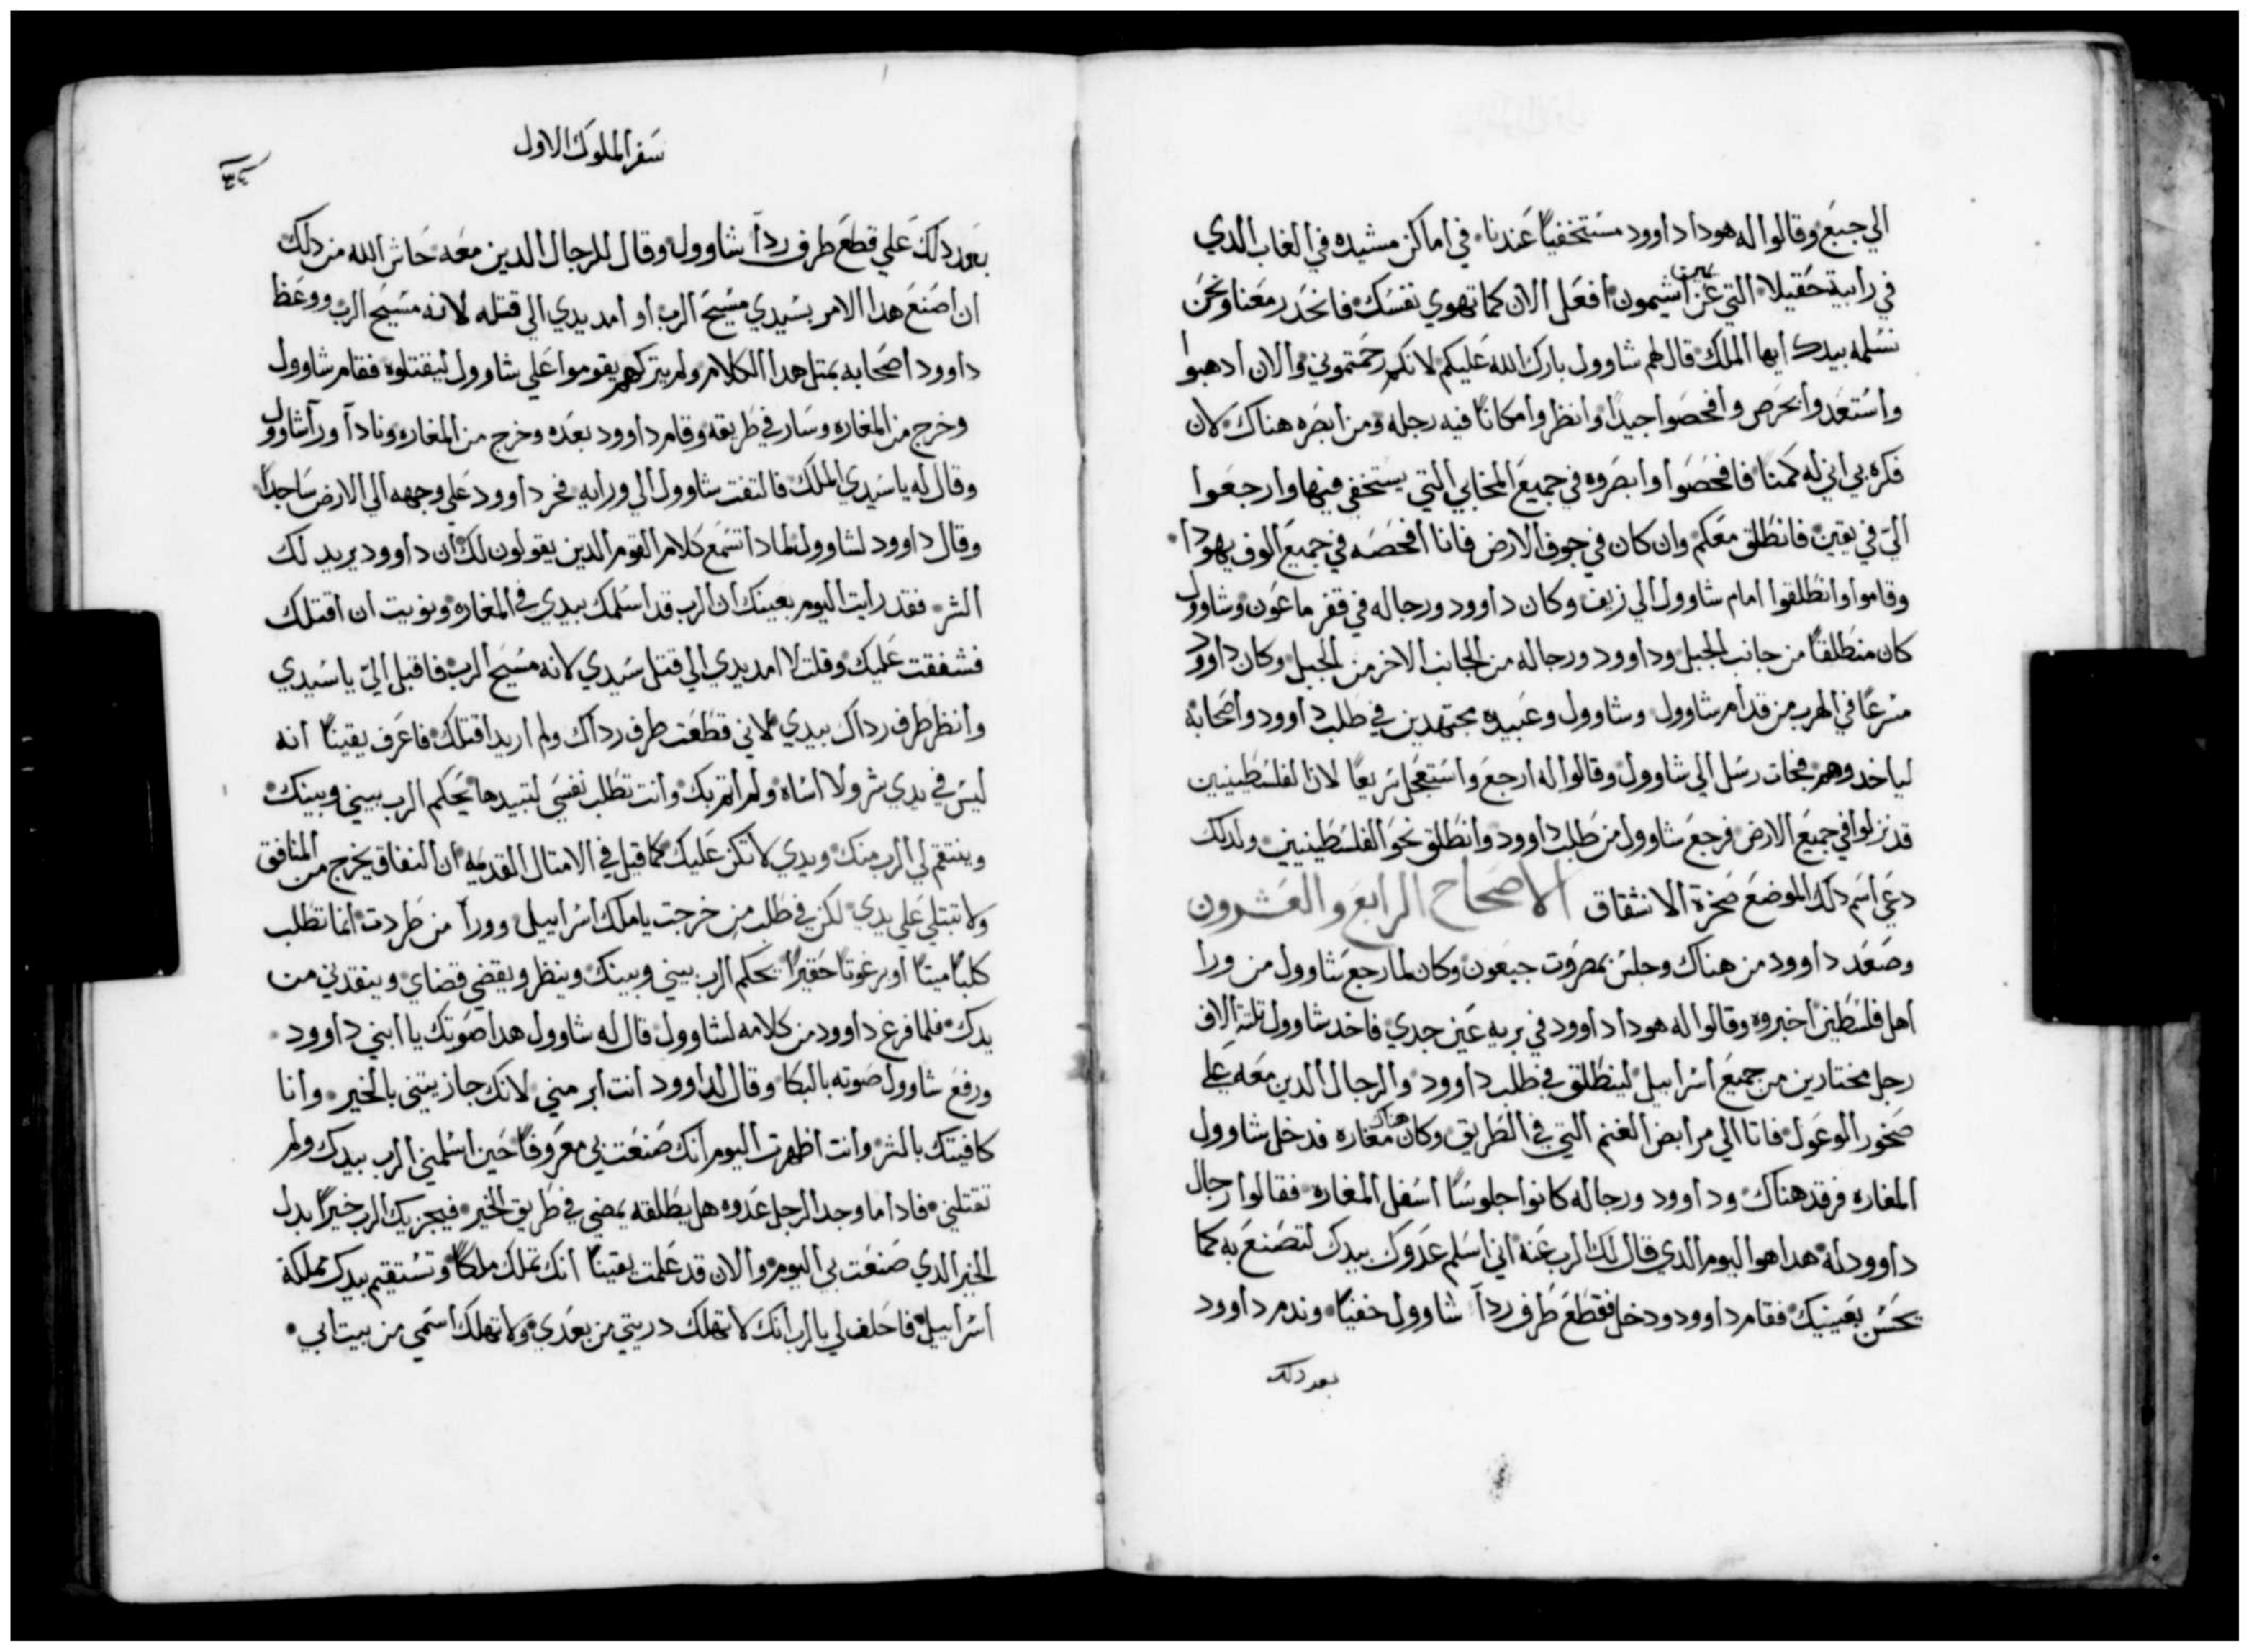 الي جبع وقالوا له هودا داوود مستخفيا عندنا في اماكن مشيده في الغاب الدي
في رابية حقيلا التي عن يمين اشيمون افعل الان كما تهوي نفسك فانحدر معنا ونحن
نسلمه بيدك ايها الملك قال لهم شاوول بارك الله عليكم لانكم رحمتموني والان ادهبوا
واستعدوا بحرص وافحصوا جيدا وانظروا مكانا فيه رجله ومن ابصره هناك لان
فكره بي اني له كمنا فافحصوا وابصروه في جميع المخابي التي يستخفي فيها وارجعوا
الي في يقين فانطلق معكم وان كان في جوف الارض فانا افحصه في جميع الوف يهودا
وقاموا وانطلقوا امام شاوول الي زيف وكان داوود ورجاله في قفر ماعون وشاوول
كان منطلقا من جانب الجبل وداوود ورجاله من الجانب الاخر من الجبل وكان داوود
مسرعا في الهرب من قدام شاوول وشاوول وعبيده مجتهدين في طلب داوود واصحابه
لياخدوهم فجات رسل الي شاوول وقالوا له ارجع واستعجل سريعا لان الفلسطينيين
قد نزلوا في جميع الارض فرجع شاوول من طلب داوود وانطلق نحو الفلسطينيين ولدلك
دعي اسم دلك الموضع صخرة الانشقاق الاصحاح الرابع والعشرون
وصعد داوود من هناك وجلس بمصروت جبعون وكان لما رجع شاوول من ورا
اهل فلسطين اخبروه وقالوا له هودا داوود في بريه عين جدي فاخد شاوول تلتة الاف
رجل مختارين من جميع اسراييل لينطلق في طلب داوود والرجال الدين معه علي
صخور الوعول فاتا الي مرابض الغنم التي في الطريق وكان هناك مغاره فدخل شاوول
المغاره فرقد هناك وداوود ورجاله كانوا جلوسا اسفل المغاره فقالوا رجال
داوود له هدا هو اليوم الدي قال لك الرب عنه اني اسلم عدوك بيدك لتصنع به كما
يحسن بعينيك فقام داوود ودخل فقطع طرف ردا شاوول خفيا وندم داوود
بعد دلك
سفر الملوك الاول
٣٤
بعد دلك علي قطع طرف ردا شاوول وقال للرجال الدين معه حاش الله من دلك
ان اصنع هدا الامر بسيدي مسيح الرب او امد يدي الي قتله لانه مسيح الرب ووعظ
داوود اصحابه بمتل هدا الكلام ولم يتركهم يقوموا علي شاوول ليقتلوه فقام شاوول
وخرج من المغاره وسار في طريقه وقام داوود بعده وخرج من المغاره ونادا ورا شاوول
وقال له يا سيدي الملك فالتفت شاوول الي ورايه فخر داوود علي وجهه الي الارض ساجدا
وقال داوود لشاوول لمادا تسمع كلام القوم الدين يقولون لك ان داوود يريد لك
الشر فقد رايت اليوم بعينك ان الرب قد اسلمك بيدي في المغاره ونويت ان اقتلك
فشفقت عليك وقلت لا امد يدي الي قتل سيدي لانه مسيح الرب فاقبل الي يا سيدي
وانظر طرف رداك بيدي لاني قطعت طرف رداك ولم اريد اقتلك فاعرف يقينا انه
ليس في يدي شر ولا اساه ولم اتم بك وانت تطلب نفسي لتبيدها يحكم الرب بيني وبينك
وينتقم لي الرب منك ويدي لا تكن عليك كما قيل في الامتال القديمه ان النفاق يخرج من المنافق
ولا تبتلي علي يدي لكن في طلب من خرجت يا ملك اسراييل وورا من طردت انما تطلب
كلبا ميتا او برغوتا حقيرا يحكم الرب بيني وبينك وينظر ويقضي قضاي وينقدني من
يدك فلما فرغ داوود من كلامه لشاوول قال له شاوول هدا صوتك يا ابني داوود
ورفع شاوول صوته بالبكا وقال لداوود انت ابر مني لانك جازيتني بالخير وانا
كافيتك بالشر وانت اظهرت اليوم انك صنعت بي معروفا حين اسلمني الرب بيدك ولم
تقتلني فادا ما وجد الرجل عدوه هل يطلقه يمضي في طريق الخير فيجزيك الرب خيرا بدل
الخير الدي صنعت بي اليوم والان قد علمت يقينا انك تملك ملكا وتستقيم بيدك مملكة
اسراييل فاحلف لي بالرب انك لا تهلك دريتي من بعدي ولا تهلك اسمي من بيت ابي